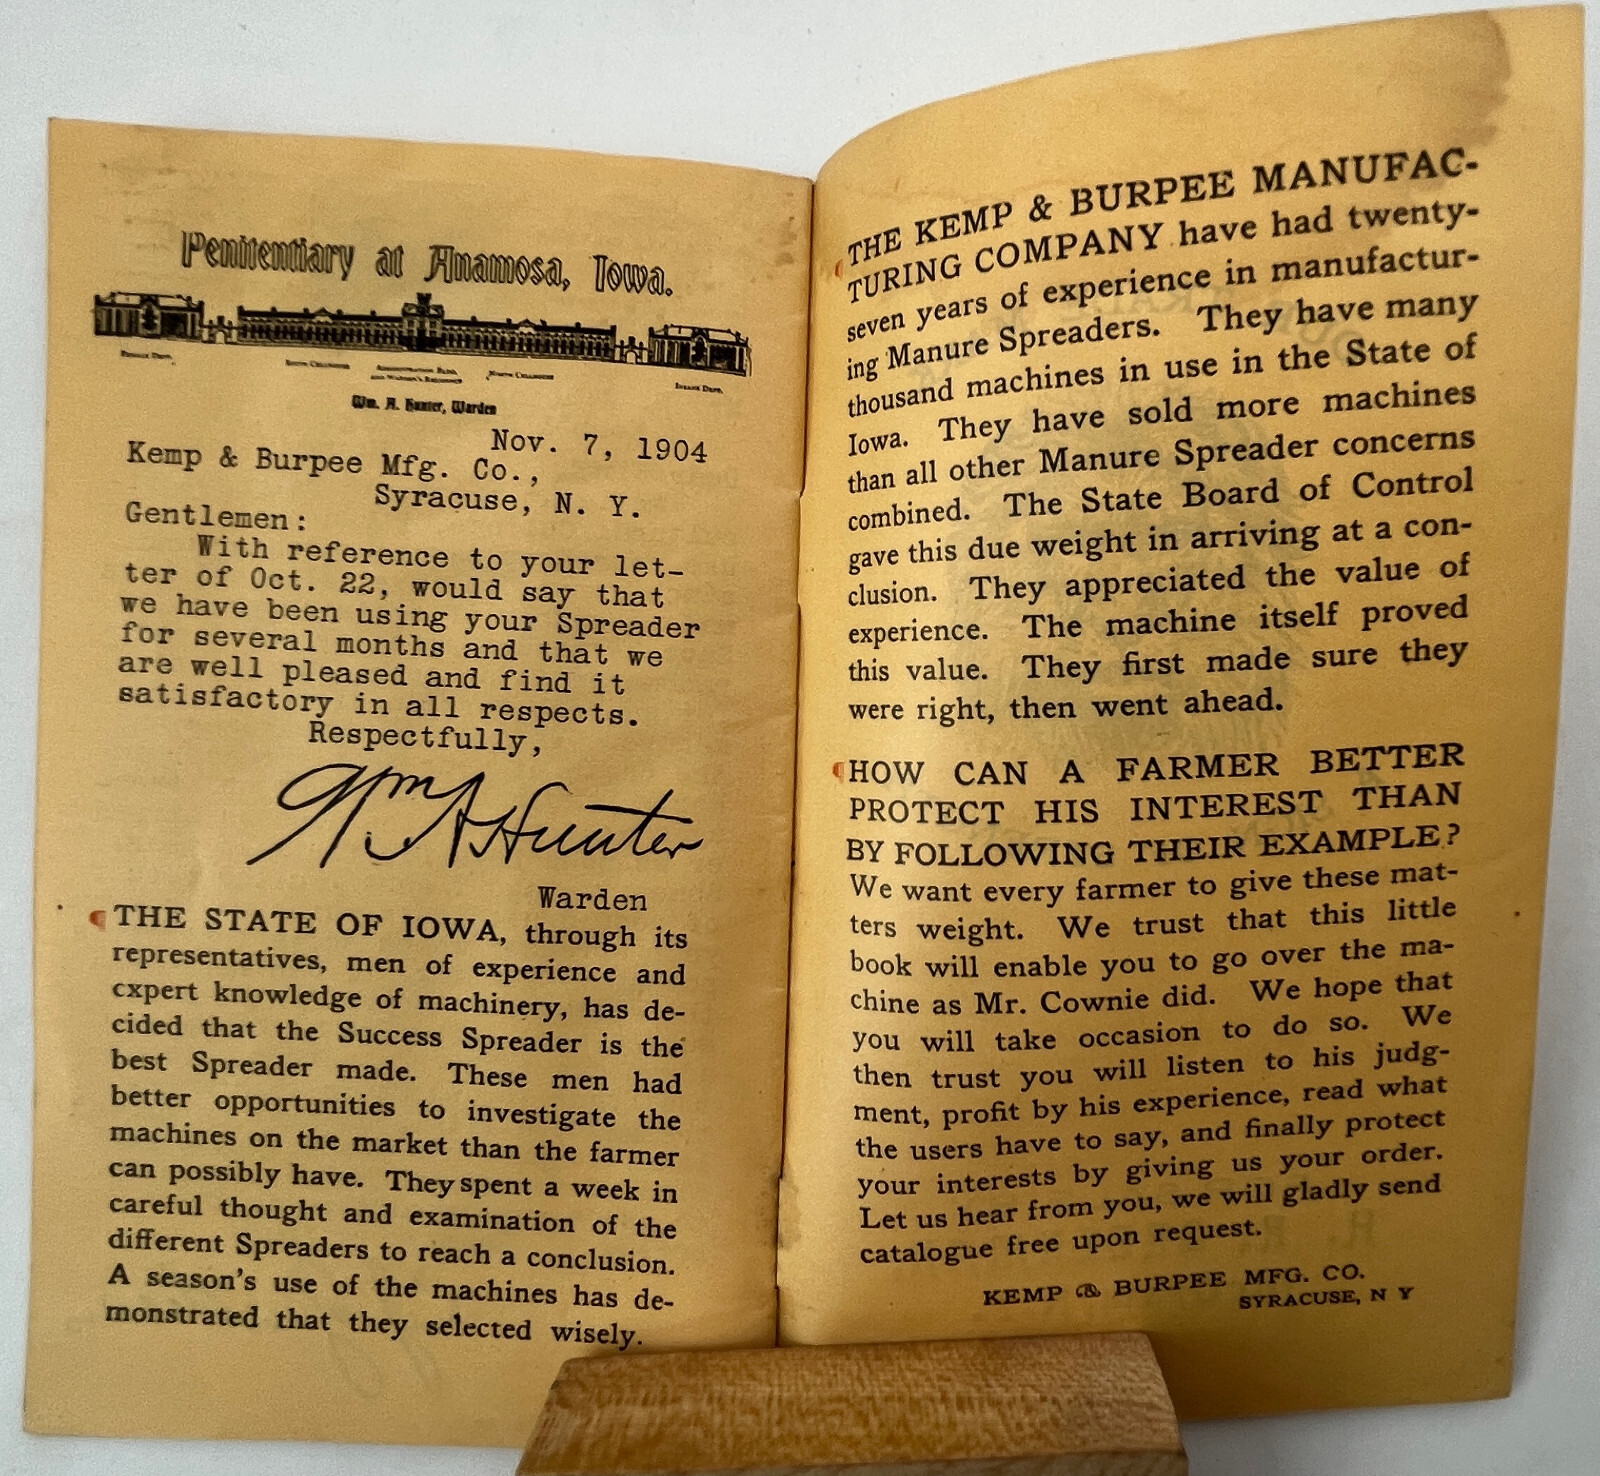 Penitentiary at Anamosa, Iowa.
Wm. A. Hunter, Warden
Nov. 7, 1904
Kemp & Burpee Mfg. Co.,
Syracuse, N. Y.
Gentlemen:
With reference to your let-
ter of Oct. 22, would say that
we have been using your Spreader
for several months and that we
are well pleased and find it
satisfactory in all respects.
Respectfully,
Wm A Hunter
Warden
THE STATE OF IOWA, through its
representatives, men of experience and
expert knowledge of machinery, has de-
cided that the Success Spreader is the
best Spreader made. These men had
better opportunities to investigate the
machines on the market than the farmer
can possibly have. They spent a week in
careful thought and examination of the
different Spreaders to reach a conclusion.
A season's use of the machines has de-
monstrated that they selected wisely.
THE KEMP & BURPEE MANUFAC-
TURING COMPANY have had twenty-
seven years of experience in manufactur-
ing Manure Spreaders. They have many
thousand machines in use in the State of
Iowa. They have sold more machines
than all other Manure Spreader concerns
combined. The State Board of Control
gave this due weight in arriving at a con-
clusion. They appreciated the value of
experience. The machine itself proved
this value. They first made sure they
were right, then went ahead.
HOW CAN A FARMER BETTER
PROTECT HIS INTEREST THAN
BY FOLLOWING THEIR EXAMPLE?
We want every farmer to give these mat-
ters weight. We trust that this little
book will enable you to go over the ma-
chine as Mr. Cownie did. We hope that
you will take occasion to do so. We
then trust you will listen to his judg-
ment, profit by his experience, read what
the users have to say, and finally protect
your interests by giving us your order.
Let us hear from you, we will gladly send
catalogue free upon request.
KEMP & BURPEE MFG. CO.
SYRACUSE, N Y